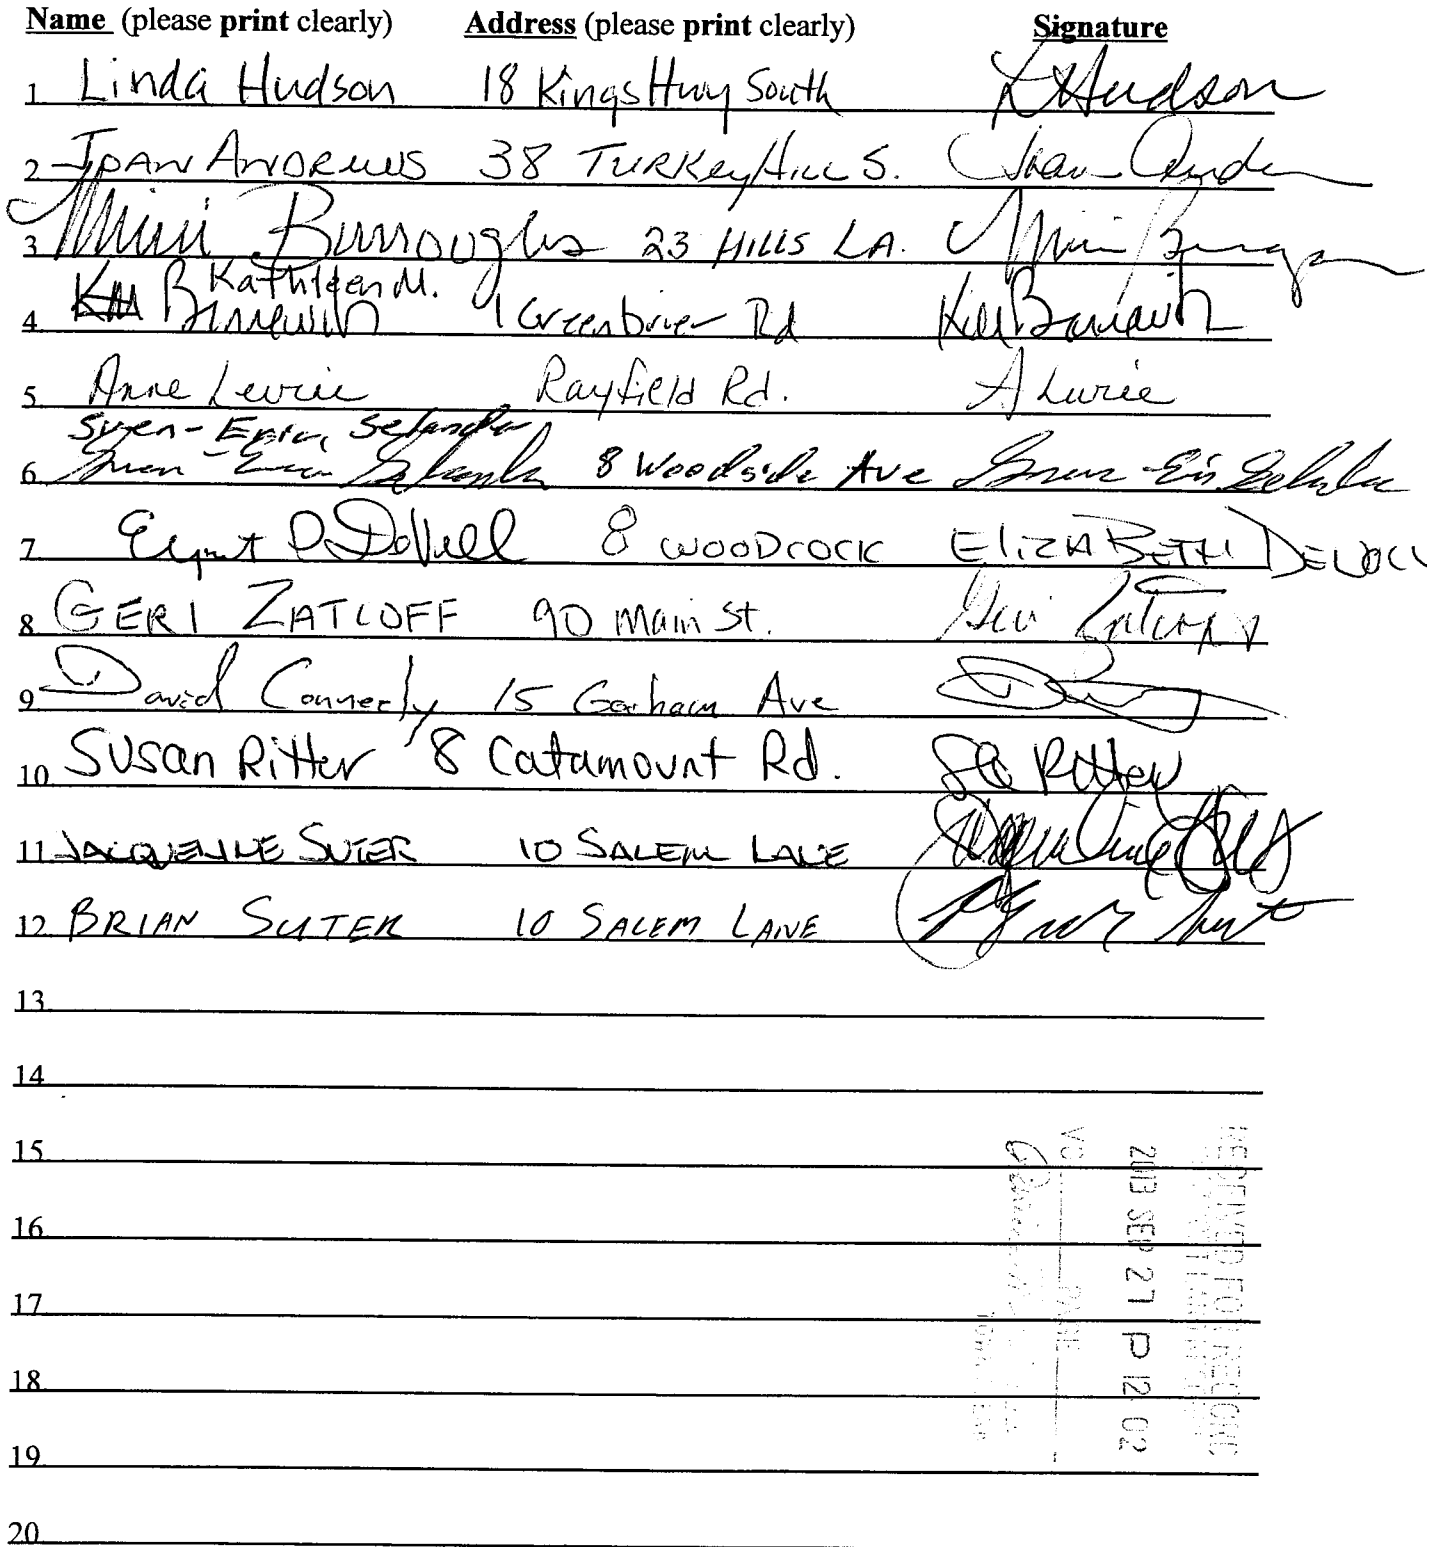 Name (please print clearly) Address (please print clearly) Signature
1. Linda Hudson 18 Kings Hwy South L Hudson
2. JOAN ANDREWS 38 TURKey Hill S. Joan
3. Mimi Burroughs 23 HILLS LA. Mimi
Kathleen M.
4. KM 9 Greenbrier Rd KM
5. Anne Lurie Rayfield Rd. A Lurie
Sven-Eric Selander
6. Sven-Eric Selander 8 Woodside Ave Sven-Eric Selander
7. 8 WOODCOCK ELIZABETH DEVOLL
8. GERI ZATCOFF 90 Main St. Geri
9. David Connerly 15 Gorham Ave
10. Susan Ritter 8 Catamount Rd. Ritter
11. JACQUELINE SUTER 10 SALEM LANE Jacqueline
12. BRIAN SUTER 10 SALEM LANE
13.
14.
15.
16.
17.
18.
19.
20.
RECEIVED FOR RECORD
2013 SEP 27 P 12:02
PAGE